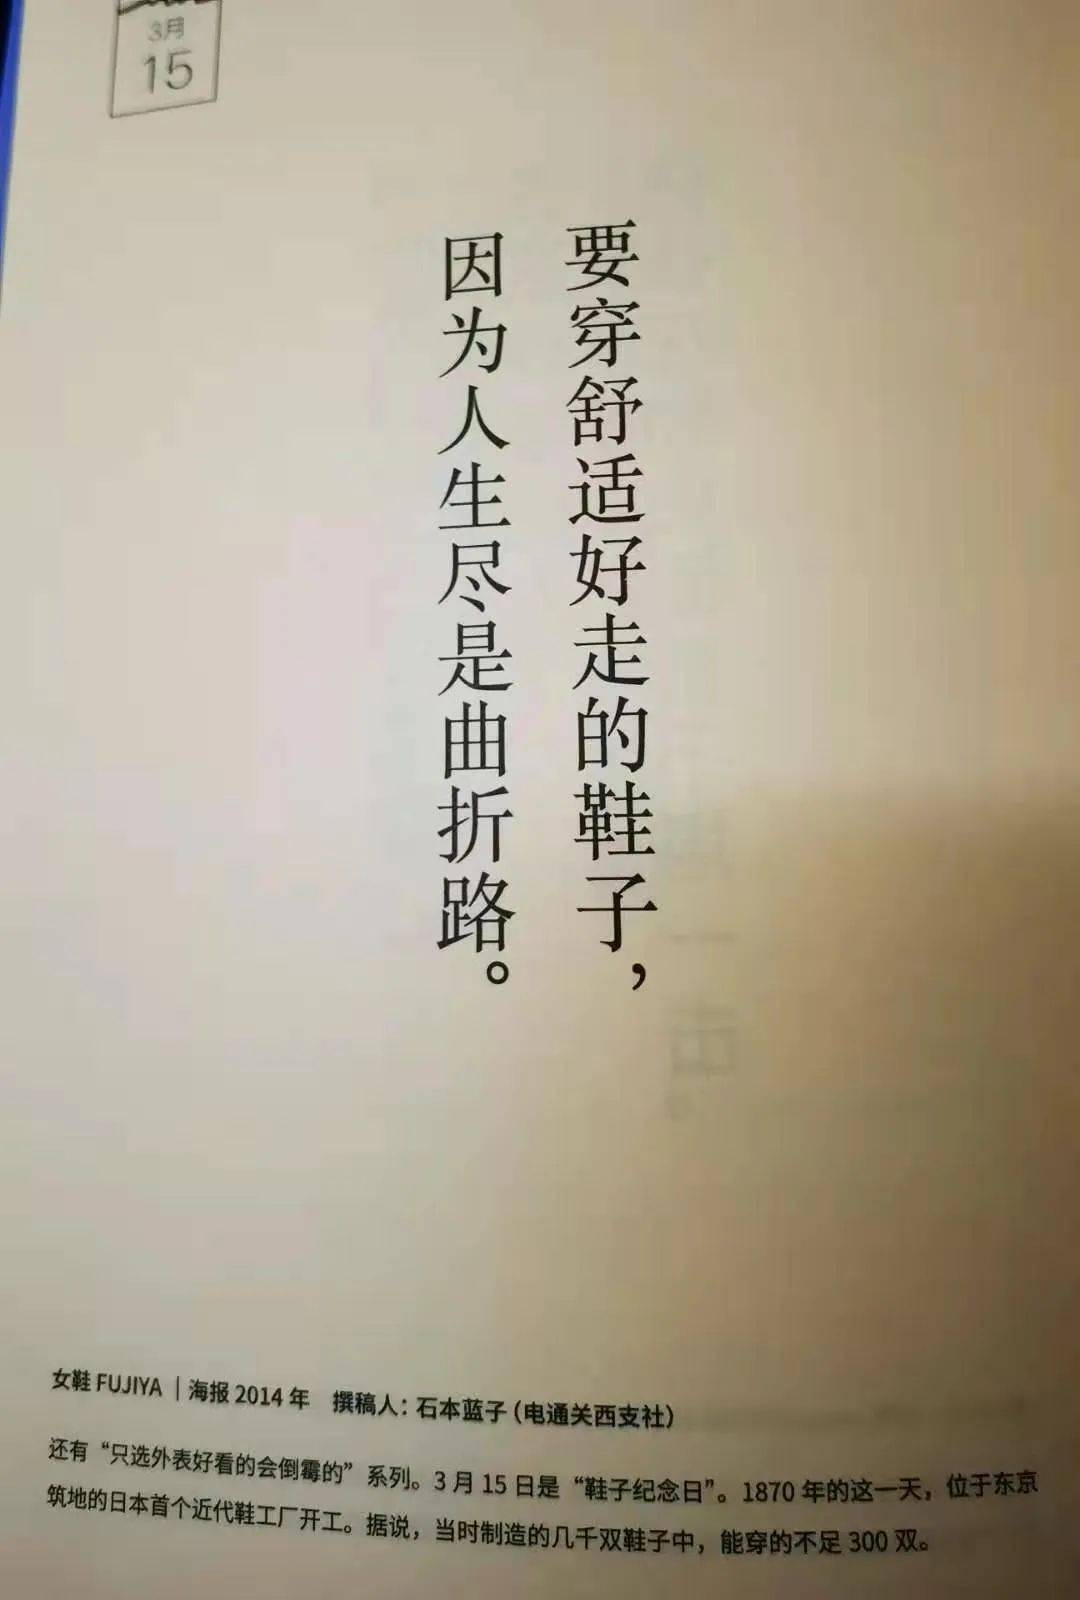 3月
15
要穿舒适好走的鞋子，
因为人生尽是曲折路。
女鞋 FUJIYA｜海报 2014 年　撰稿人：石本蓝子（电通关西支社）
还有“只选外表好看的会倒霉的”系列。3 月 15 日是“鞋子纪念日”。1870 年的这一天，位于东京
筑地的日本首个近代鞋工厂开工。据说，当时制造的几千双鞋子中，能穿的不足 300 双。